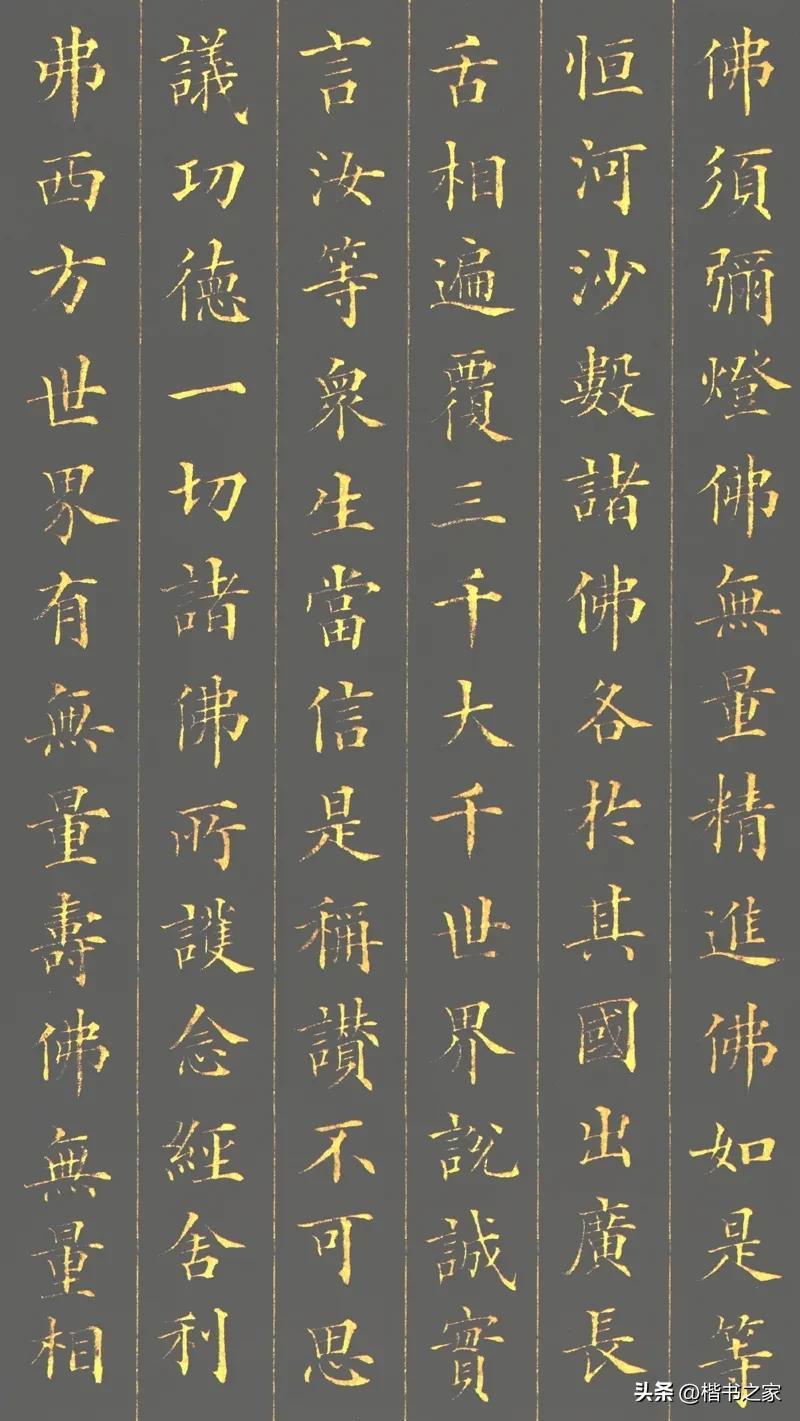 佛須彌燈佛無量精進佛如是等
恒河沙數諸佛各於其國出廣長
舌相遍覆三千大千世界說誠實
言汝等衆生當信是稱讚不可思
議功德一切諸佛所護念經舍利
弗西方世界有無量壽佛無量相
头条 @楷书之家